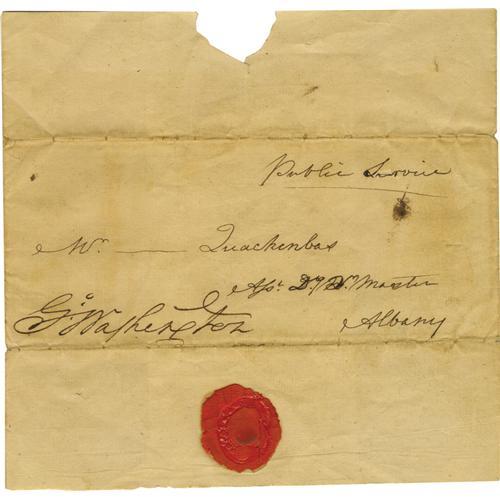 Public Service
Mr. —— Quackenbos
Asst. D. Qr. Master
Go: Washington
Albany